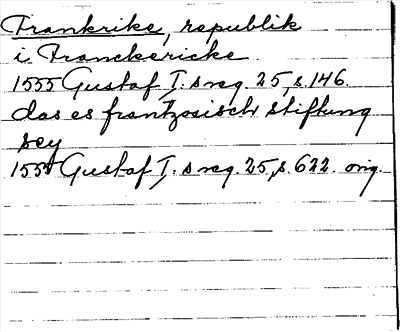 Frankrike, republik
i Franckericke
1555 Gustaf I. s reg. 25, s. 146.
das es frantzosisch stiftung
sey
1555 Gustaf I. s reg. 25, s. 622. orig.